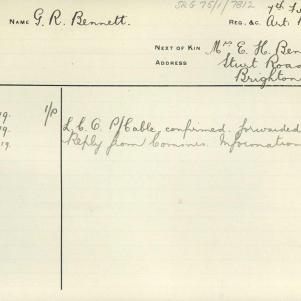 SRG 76/1/7812
NAME G. R. Bennett.
7th F
REG. &C. Art.
NEXT OF KIN Mrs E. H. Ben
ADDRESS Sturt Road
Brighton
19. I/P L. C. O. P/Cable, confirmed. forwarded
19. Reply from Commrs. Information
19.